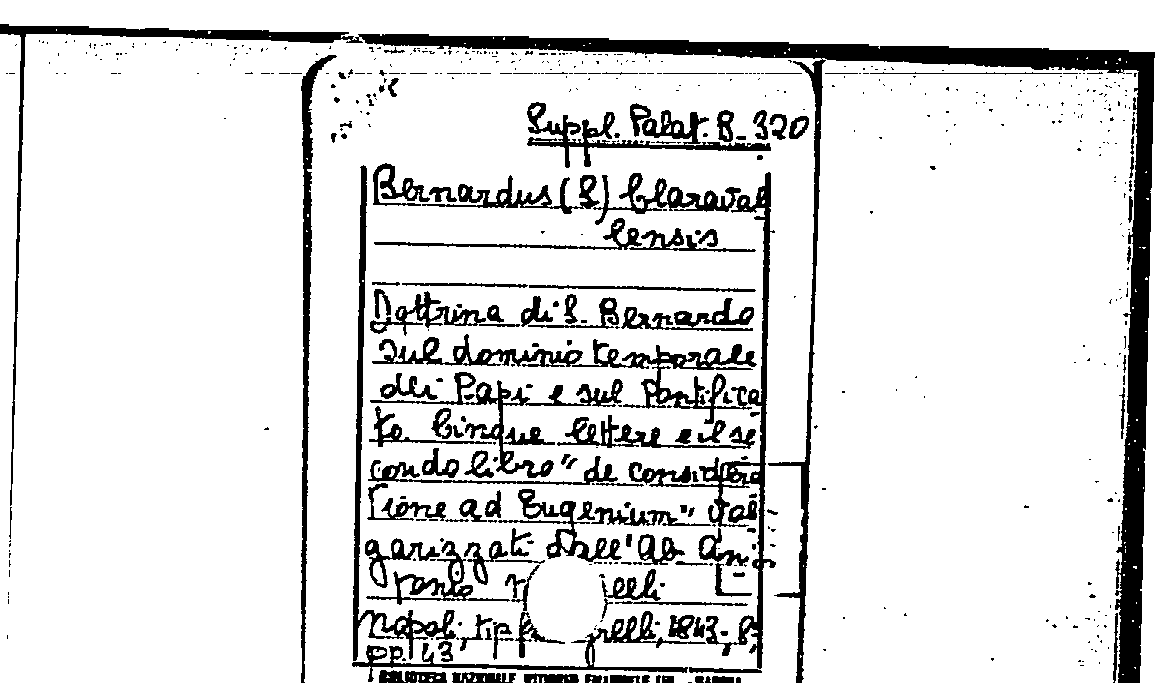 Suppl. Palat. B-320
Bernardus (S) Claraval
lensis
Dottrina di S. Bernardo
sul dominio temporale
dei Papi e sul Pontifica
to. Cinque lettere e il se
condo libro "de considera
tione ad Eugenium" vol
garizzati dall'Ab. An
tonio
Napoli, tip. 1843-8;
pp. 43
BIBLIOTECA NAZIONALE VITTORIO EMANUELE III - NAPOLI